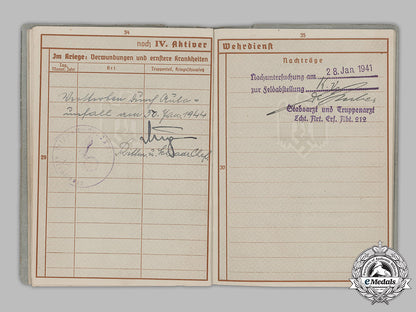 34
noch IV. Aktiver
Im Kriege: Verwundungen und ernstere Krankheiten
Tag, Monat, Jahr
Art
Truppenteil, Kriegslazarett
Verstorben durch Auto-
unfall am 30. Jan. 1944
29
35
Wehrdienst
Nachträge
Nachuntersuchung am 28. Jan 1941
zur Feldabteilung
Stabsarzt und Truppenarzt
Abt. 212
29
eMedals